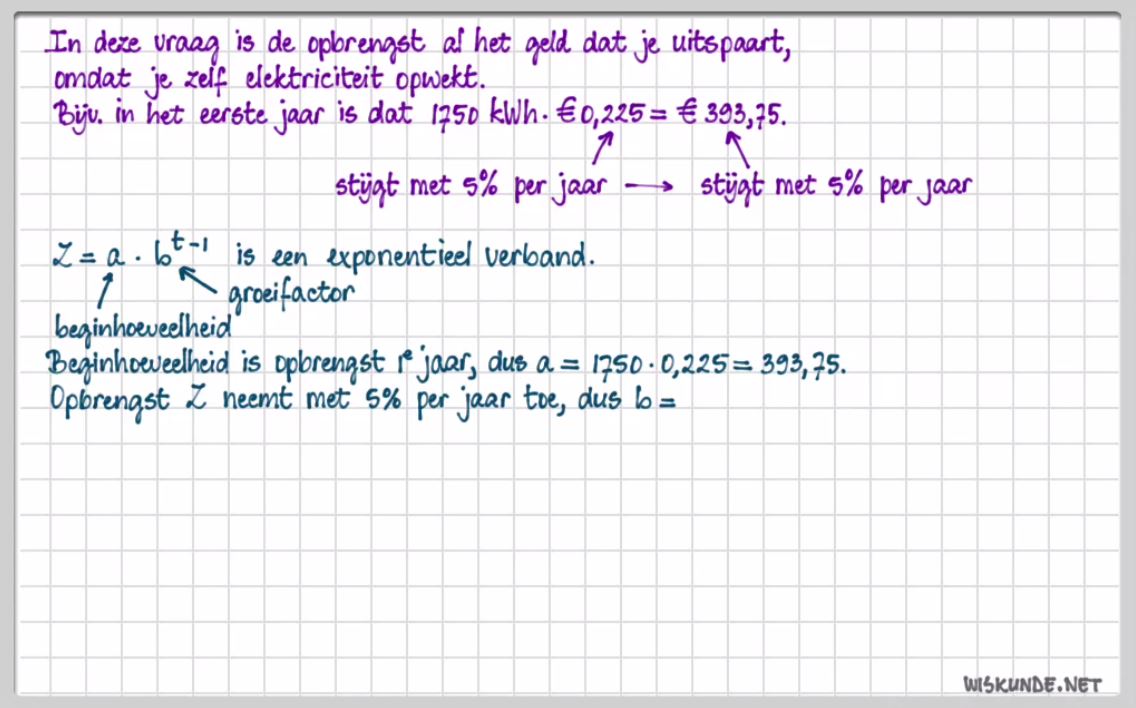 In deze vraag is de opbrengst al het geld dat je uitspaart,
omdat je zelf elektriciteit opwekt.
Bijv. in het eerste jaar is dat 1750 kWh · € 0,225 = € 393,75.
stijgt met 5% per jaar → stijgt met 5% per jaar
Z = a · b^(t-1) is een exponentieel verband.
groeifactor
beginhoeveelheid
Beginhoeveelheid is opbrengst 1e jaar, dus a = 1750 · 0,225 = 393,75.
Opbrengst Z neemt met 5% per jaar toe, dus b =
WISKUNDE.NET